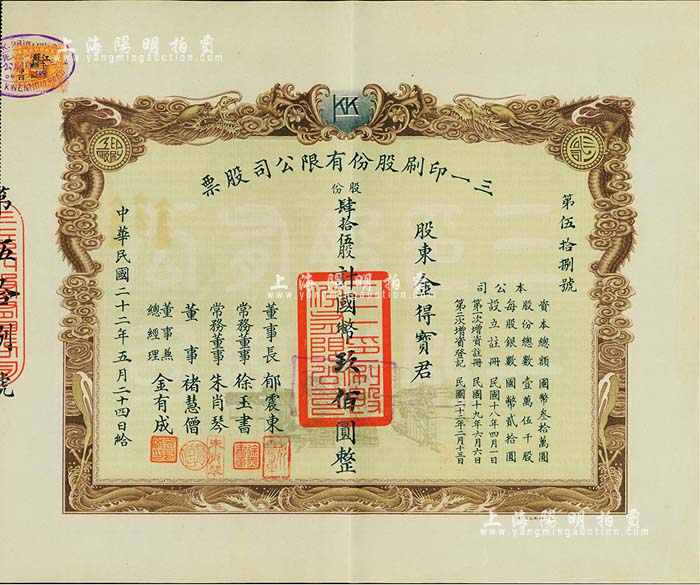 上海陽明拍賣
www.yangmingauction.com
KK
三一印刷股份有限公司股票
第伍拾捌號
本公司
資本總額 國幣叁拾萬圓
股份總數 壹萬伍千股
每股銀數 國幣貳拾圓
設立註冊 民國十八年四月一日
第一次增資註冊 民國十九年六月六日
第二次增資登記 民國二十二年二月十三日
股東 金得寶君
股份
肆拾伍股 計國幣玖佰圓整
董事長 郁震東
常務董事 徐玉書
常務董事 朱肖琴
董事 褚慧僧
董事兼總經理 金有成
中華民國二十二年五月二十四日給
上海陽明拍賣
www.yangmingauction.com
上海陽明拍賣
www.yangmingauction.com